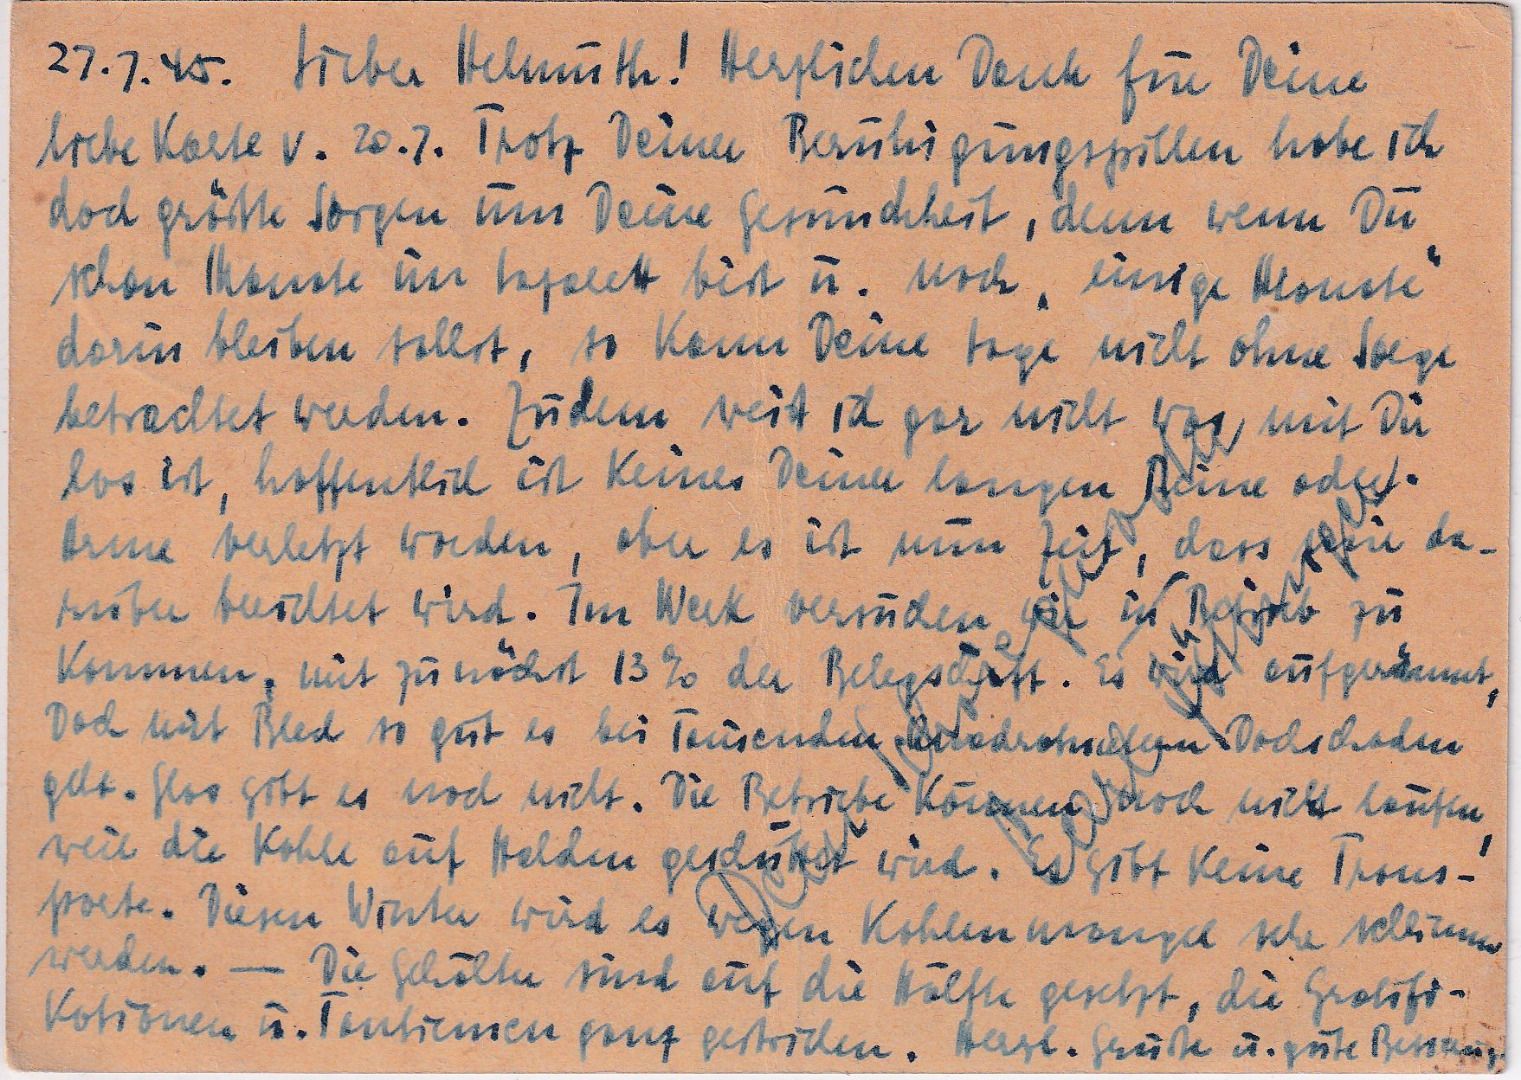 27.7.45. Lieber Helmuth! Herzlichen Dank für Deine
liebe Karte v. 20.7. Trotz Deiner Beruhigungspillen habe ich
doch größte Sorgen um Deine Gesundheit, denn wenn Du
schon Monate im Lazarett bist u. noch „einige Monate"
darin bleiben sollst, so kann Deine Lage nicht ohne Sorge
betrachtet werden. Zudem weiß ich gar nicht was mit Dir
los ist, hoffentlich ist keines Deiner langen Beine oder
Arme verletzt worden, aber es ist nun Zeit, dass da-
rüber berichtet wird. Im Werk versuchen wir in Betrieb zu
kommen, mit zunächst 13% der Belegschaft. Es wird aufgeräumt,
Dach mit Blech so gut es bei Tausenden Dachschaden
geht. Glas gibt es noch nicht. Die Betriebe können noch nicht laufen,
weil die Kohle auf Halden geschüttet wird. Es gibt keine Trans-
porte. Diesen Winter wird es wegen Kohlenmangel sehr schlimm
werden. — Die Gehälter sind auf die Hälfte gesetzt, die Gratifi-
kationen u. Tantiemen ganz gestrichen. Herzl. Grüße u. gute Besserung.